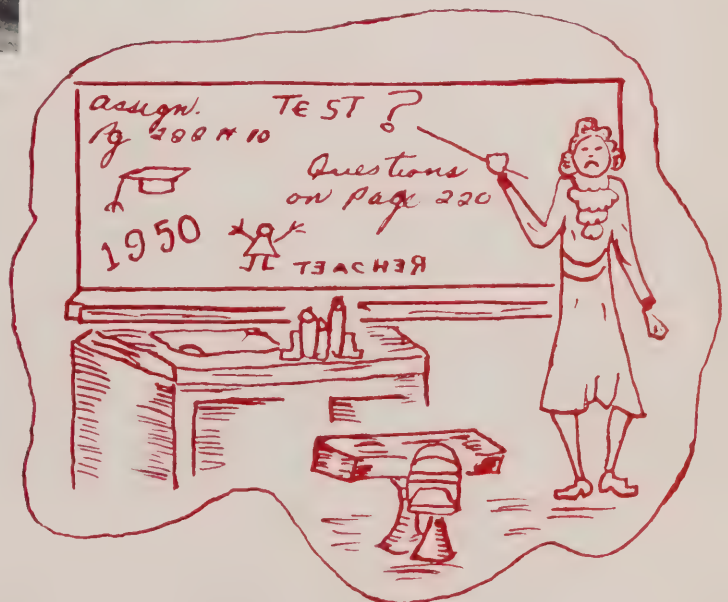 assign.
Pg 10
TEST ?
Questions
on Page 220
1950
TEACHER